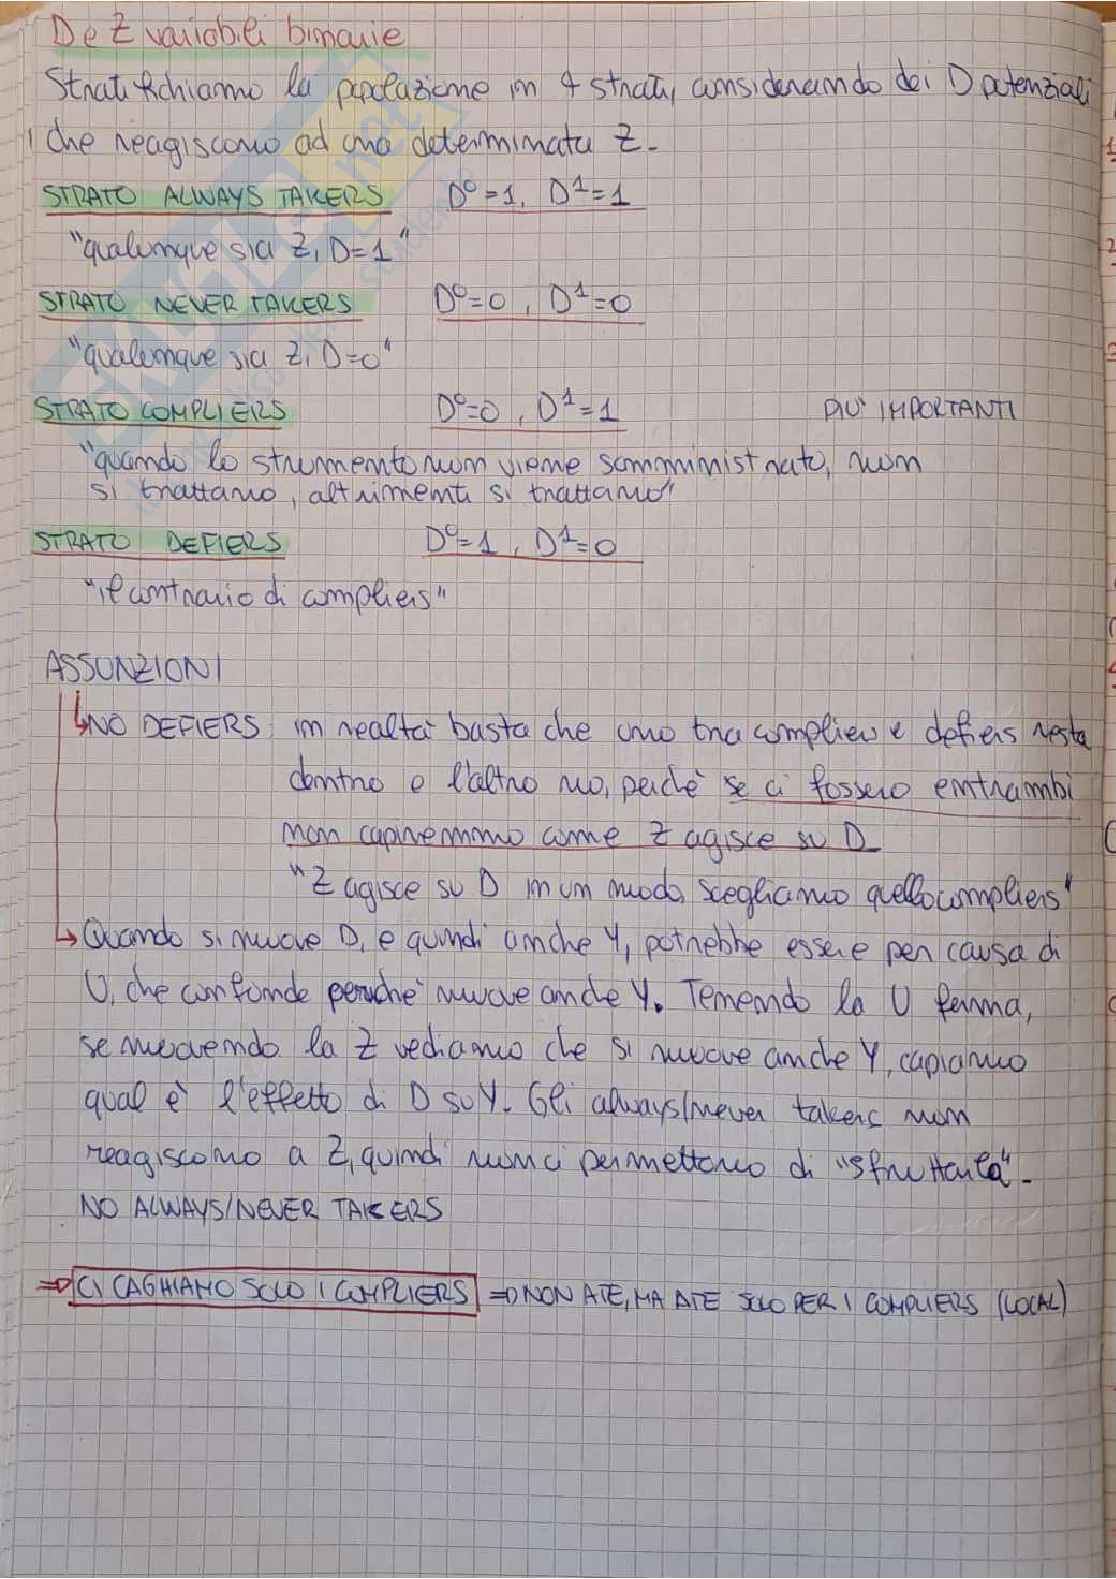 D e Z variabili binarie
Stratifichiamo la popolazione in 4 strati, considerando dei D potenziali
che reagiscono ad una determinata Z.
STRATO ALWAYS TAKERS D⁰=1, D¹=1
"qualunque sia Z, D=1"
STRATO NEVER TAKERS D⁰=0, D¹=0
"qualunque sia Z, D=0"
STRATO COMPLIERS D⁰=0, D¹=1 PIU' IMPORTANTI
"quando lo strumento non viene somministrato, non
si trattano, altrimenti si trattano"
STRATO DEFIERS D⁰=1, D¹=0
"il contrario di compliers"
ASSUNZIONI
↳NO DEFIERS: in realtà basta che uno tra compliers e defiers resta
dentro e l'altro no, perché se ci fossero entrambi
non capiremmo come Z agisce su D
"Z agisce su D in un modo, scegliamo quello compliers"
↳Quando si muove D, e quindi anche Y, potrebbe essere per causa di
U, che confonde perché muove anche Y. Tenendo la U ferma,
se muovendo la Z vediamo che si muove anche Y, capiamo
qual è l'effetto di D su Y. Gli always/never takers non
reagiscono a Z, quindi non ci permettono di "sfruttarla".
NO ALWAYS/NEVER TAKERS
⇒ CI CAGHIAMO SOLO I COMPLIERS ⇒ NON ATE, MA ATE SOLO PER I COMPLIERS (LOCAL)